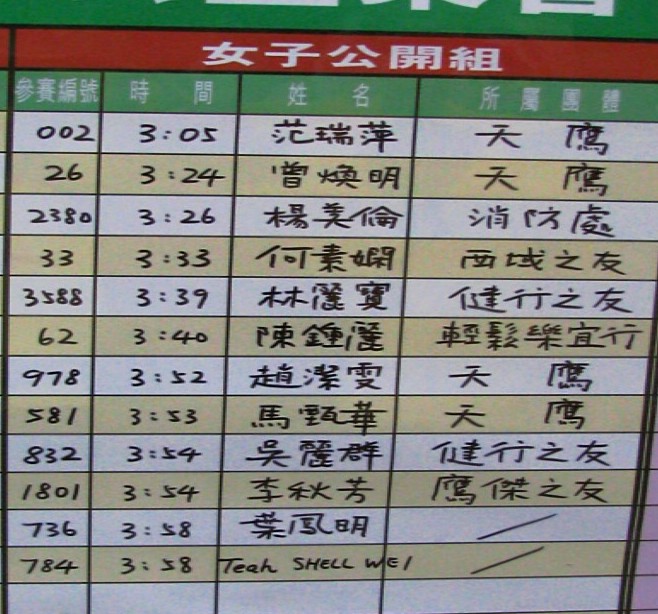 女子公開組
參賽編號 時間 姓名 所屬團體
002 3:05 范瑞萍 天鷹
26 3:24 曾煥明 天鷹
2380 3:26 楊美倫 消防處
33 3:33 何素嫻 西域之友
3588 3:39 林麗寶 健行之友
62 3:40 陳鍾麗 輕鬆樂宜行
978 3:52 趙潔雯 天鷹
581 3:53 馬甄華 天鷹
832 3:54 吳麗群 健行之友
1801 3:54 李秋芳 鷹傑之友
736 3:58 葉鳳明 /
784 3:58 Teah SHELL WEI /